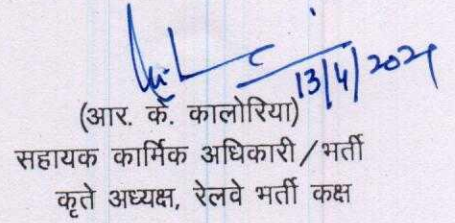 13/4/2021
(आर. के. कालोरिया)
सहायक कार्मिक अधिकारी/भर्ती
कृते अध्यक्ष, रेलवे भर्ती कक्ष